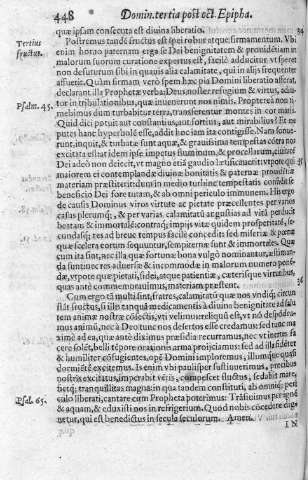 448 Domin. tertia post oct. Epipha.
quæ ipsam consecuta est diuina liberatio.
Tertius fructus.
Postremus tandē fructus est spei robur atque firmamentum. Vbi
enim horao parentem erga se Dei benignitatem & prouidētiam in
malorum suorum curatione expertus est, facilè adducitur, vt speret
non defuturum sibi in quauis alia calamitate, qui in alijs frequenter
affuit. Quàm firmam verò spem hæc pia Domini liberatio afferat,
declarant illa Prophetæ verba: Deus noster refugium & virtus, adiu-
Psalm. 45.
tor in tribulationibus, quæ inuenerunt nos nimis. Propterea non ti-
mebimus dum turbabitur terra, & transferentur montes in cor maris.
Quid dici potuit aut constantius, aut fortius, aut mirabilius? Et ne
putes hanc hyperbolē esse, addit hoc iam ita contigisse. Nam sonue-
runt, inquit, & turbatæ sunt aquæ, & grauissima tempestas
excitata est: at idem ipse impetus fluminum, & procellarum,
Dei adeò non deiecit, vt magno etiā gaudio
maiorem ei contemplandæ diuinæ bonitatis & paternæ prouidētiæ
materiam præstiterit: dum in medio turbine tempestatis considit se
beneficio Dei fore tutam, & ab omni periculo immunem. His ergo
de causis Dominus viros virtute ac pietate præcellentes per varios
casus plerumq;, & per varias calamitatū angustias ad vitā perducit
beatam & immortalē: contraq; impijs vitæ quidem prosperitatē, se-
cundasq; res ad breue tempus facilè concedit: sed miseriæ & pœnæ
quæ scelera eorum sequuntur, sempiternæ sunt & immortales. Quæ
cum ita sint, nec illa quæ fortunæ bona vulgò nominantur, æstiman-
da sunt: nec res aduersæ & incommodæ in malorum numero ponē-
dæ, vtpote quæ pietati, fidei, atque patientiæ, cæterisque virtutibus,
quas antè commemorauimus, materiam præstent.
Cum ergo tā multi sint, fratres, calamitatū quæ nos vndiq; circun-
stāt fructus, si illis tanquā medicamentis à diuina benignitate ad salu-
tem animæ nostræ collectis, vti velimus: reliquū est, vt nō despōdea-
mus animū, nec à Deo tunc nos desertos esse credamus: sed tunc ma
ximè ad ea, quæ antè diximus præsidia recurramus, nec vt inermis fa
cere solēt, belli tēpore orationis arma proijciamus: sed ad illū fidēter
& humiliter cōfugientes, opē Domini imploremus, illumque quasi
dormiētē excitemus. Is enim vbi paulisper sustinuerimus, precibus
nostris excitatus, imperabit vētis, compescet fluctus, sedabit mare:
betq; tranquillitas magna: in qua tandem constituti, ab omniq; peri
culo liberati, cantare cum Propheta poterimus: Trāsiuimus per ignē
Psal. 65.
& aquam, & eduxisti nos in refrigerium. Quod nobis cōcedere dig-
netur, qui est benedictus in secula seculorum. Amen.
IN